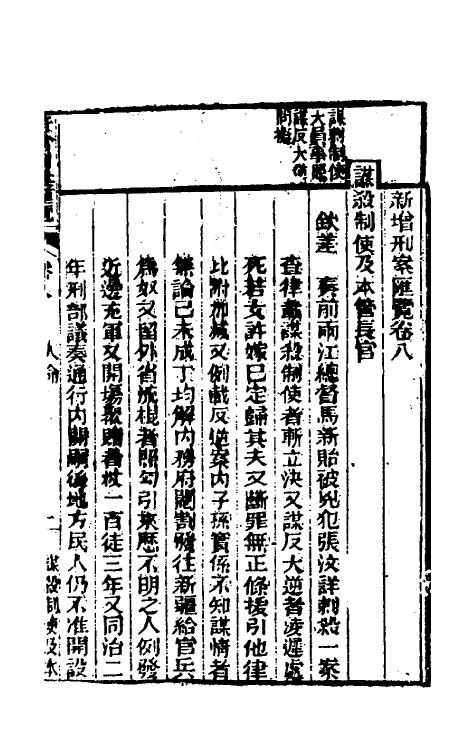 新增刑案匯覽卷八
謀殺制使及本管長官
謀刺制使
大員事照
謀反大逆
問擬
欽差 奏前兩江總督馬新貽被兇犯張汶詳刺殺一案
查律載謀殺制使者斬立決又謀反大逆者凌遲處
死若女許嫁已定歸其夫又斷罪無正條援引他律
比附加減又例載反逆案內子孫實係不知謀情者
無論已未成丁均解內務府閹割發往新疆給官兵
為奴又留外省流棍者照勾引來歷不明之人例發
近邊充軍又開場聚賭者杖一百徒三年又同治二
年刑部議奏通行內開嗣後地方民人仍不准開設
卷八 人命 一 謀殺制使及本